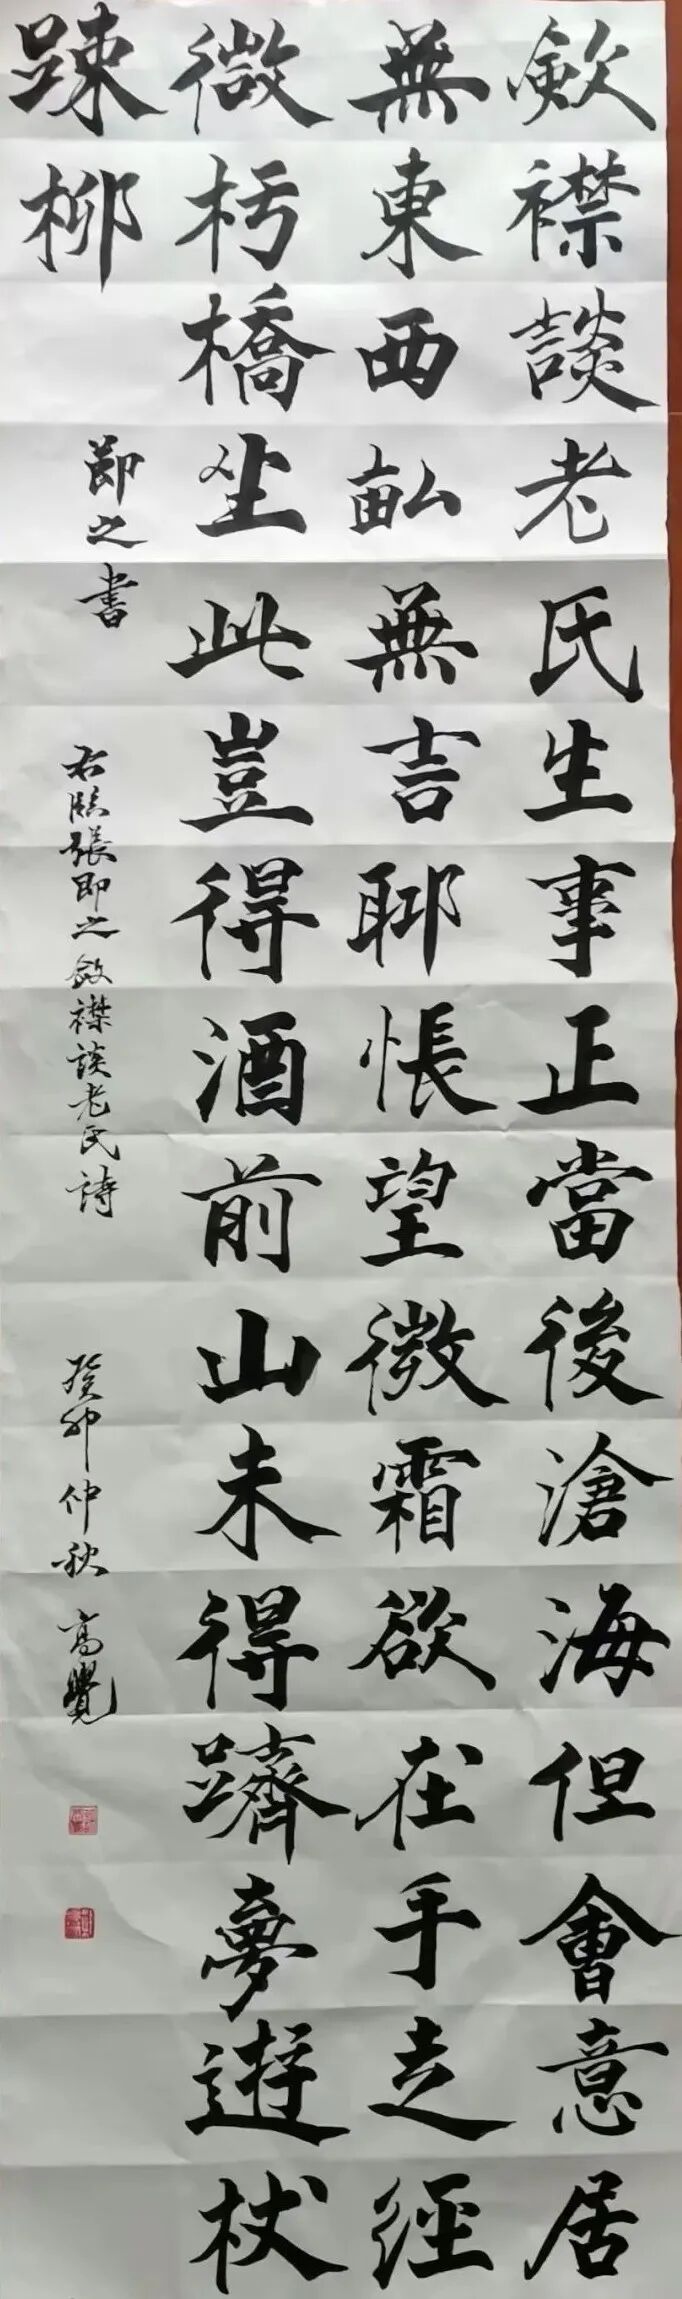 斂襟談老氏生事正當後滄海但會意居
無東西畝無言聊悵望微霜欲在手走經
微朽橋坐此豈得酒前山未得躋夢遊杖
踈柳
即之書
右臨張即之斂襟談老氏詩
癸卯仲秋 高覺